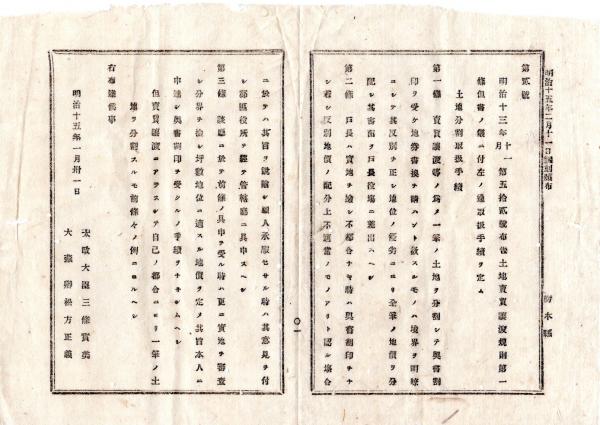 明治十五年二月十一日飜刻頒布
栃木縣
第貳號
明治十三年十一月第五拾貳號布告土地賣買讓渡規則第一
條但書ノ儀ニ付左ノ通取扱手續ヲ定ム
土地分割取扱手續
第一條 賣買讓渡等ノ爲メ一筆ノ土地ヲ分割シテ奥書割
印ヲ受ケ地券書換ヲ請ハント欲スルモノハ境界ヲ明瞭
ニシテ其反別ヲ正シ地位ノ優劣ニヨリ全筆ノ地價ヲ分
配シ其書面ヲ戸長役塲ニ差出スヘシ
第二條 戸長ハ實地ヲ檢シ不都合ナキ時ハ奥書割印ヲナ
シ若シ反別地價ノ配分上不適當ノモノアリト認ル塲合
ニ於テハ其旨ヲ説諭シ願人承服セサル時ハ其意見ヲ付
シ郡區役所ヲ經テ管轄廳ニ具申スヘシ
第三條 該廳ニ於テ前條ノ具申ヲ受ル時ハ更ニ實地ヲ審査
シ分界ヲ檢シ坪數地位ニ適スル地價ヲ定メ其旨本人ニ
申地シ奥書割印ヲ受シルノ手續ヲナサシムヘシ
但賣買讓渡ニアラスシテ自己ノ都合ニヨリ一筆ノ土
地ヲ分割スルモ前條々ノ例ニヨルヘシ
右布達候事
明治十五年一月卅一日
太政大臣三條實美
大藏卿松方正義